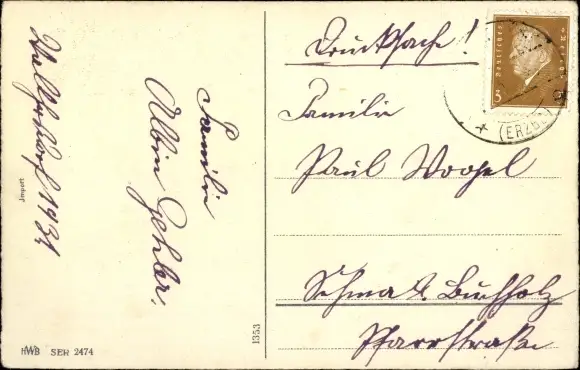 1931
Familie
Albin Gehler.
Jmport
HWB SER 2474
1353
Drucksache!
Familie
Paul Woogel
Sehma b. Buchholz
Pfarrstraße
Deutsches Reich
3
(ERZGEB